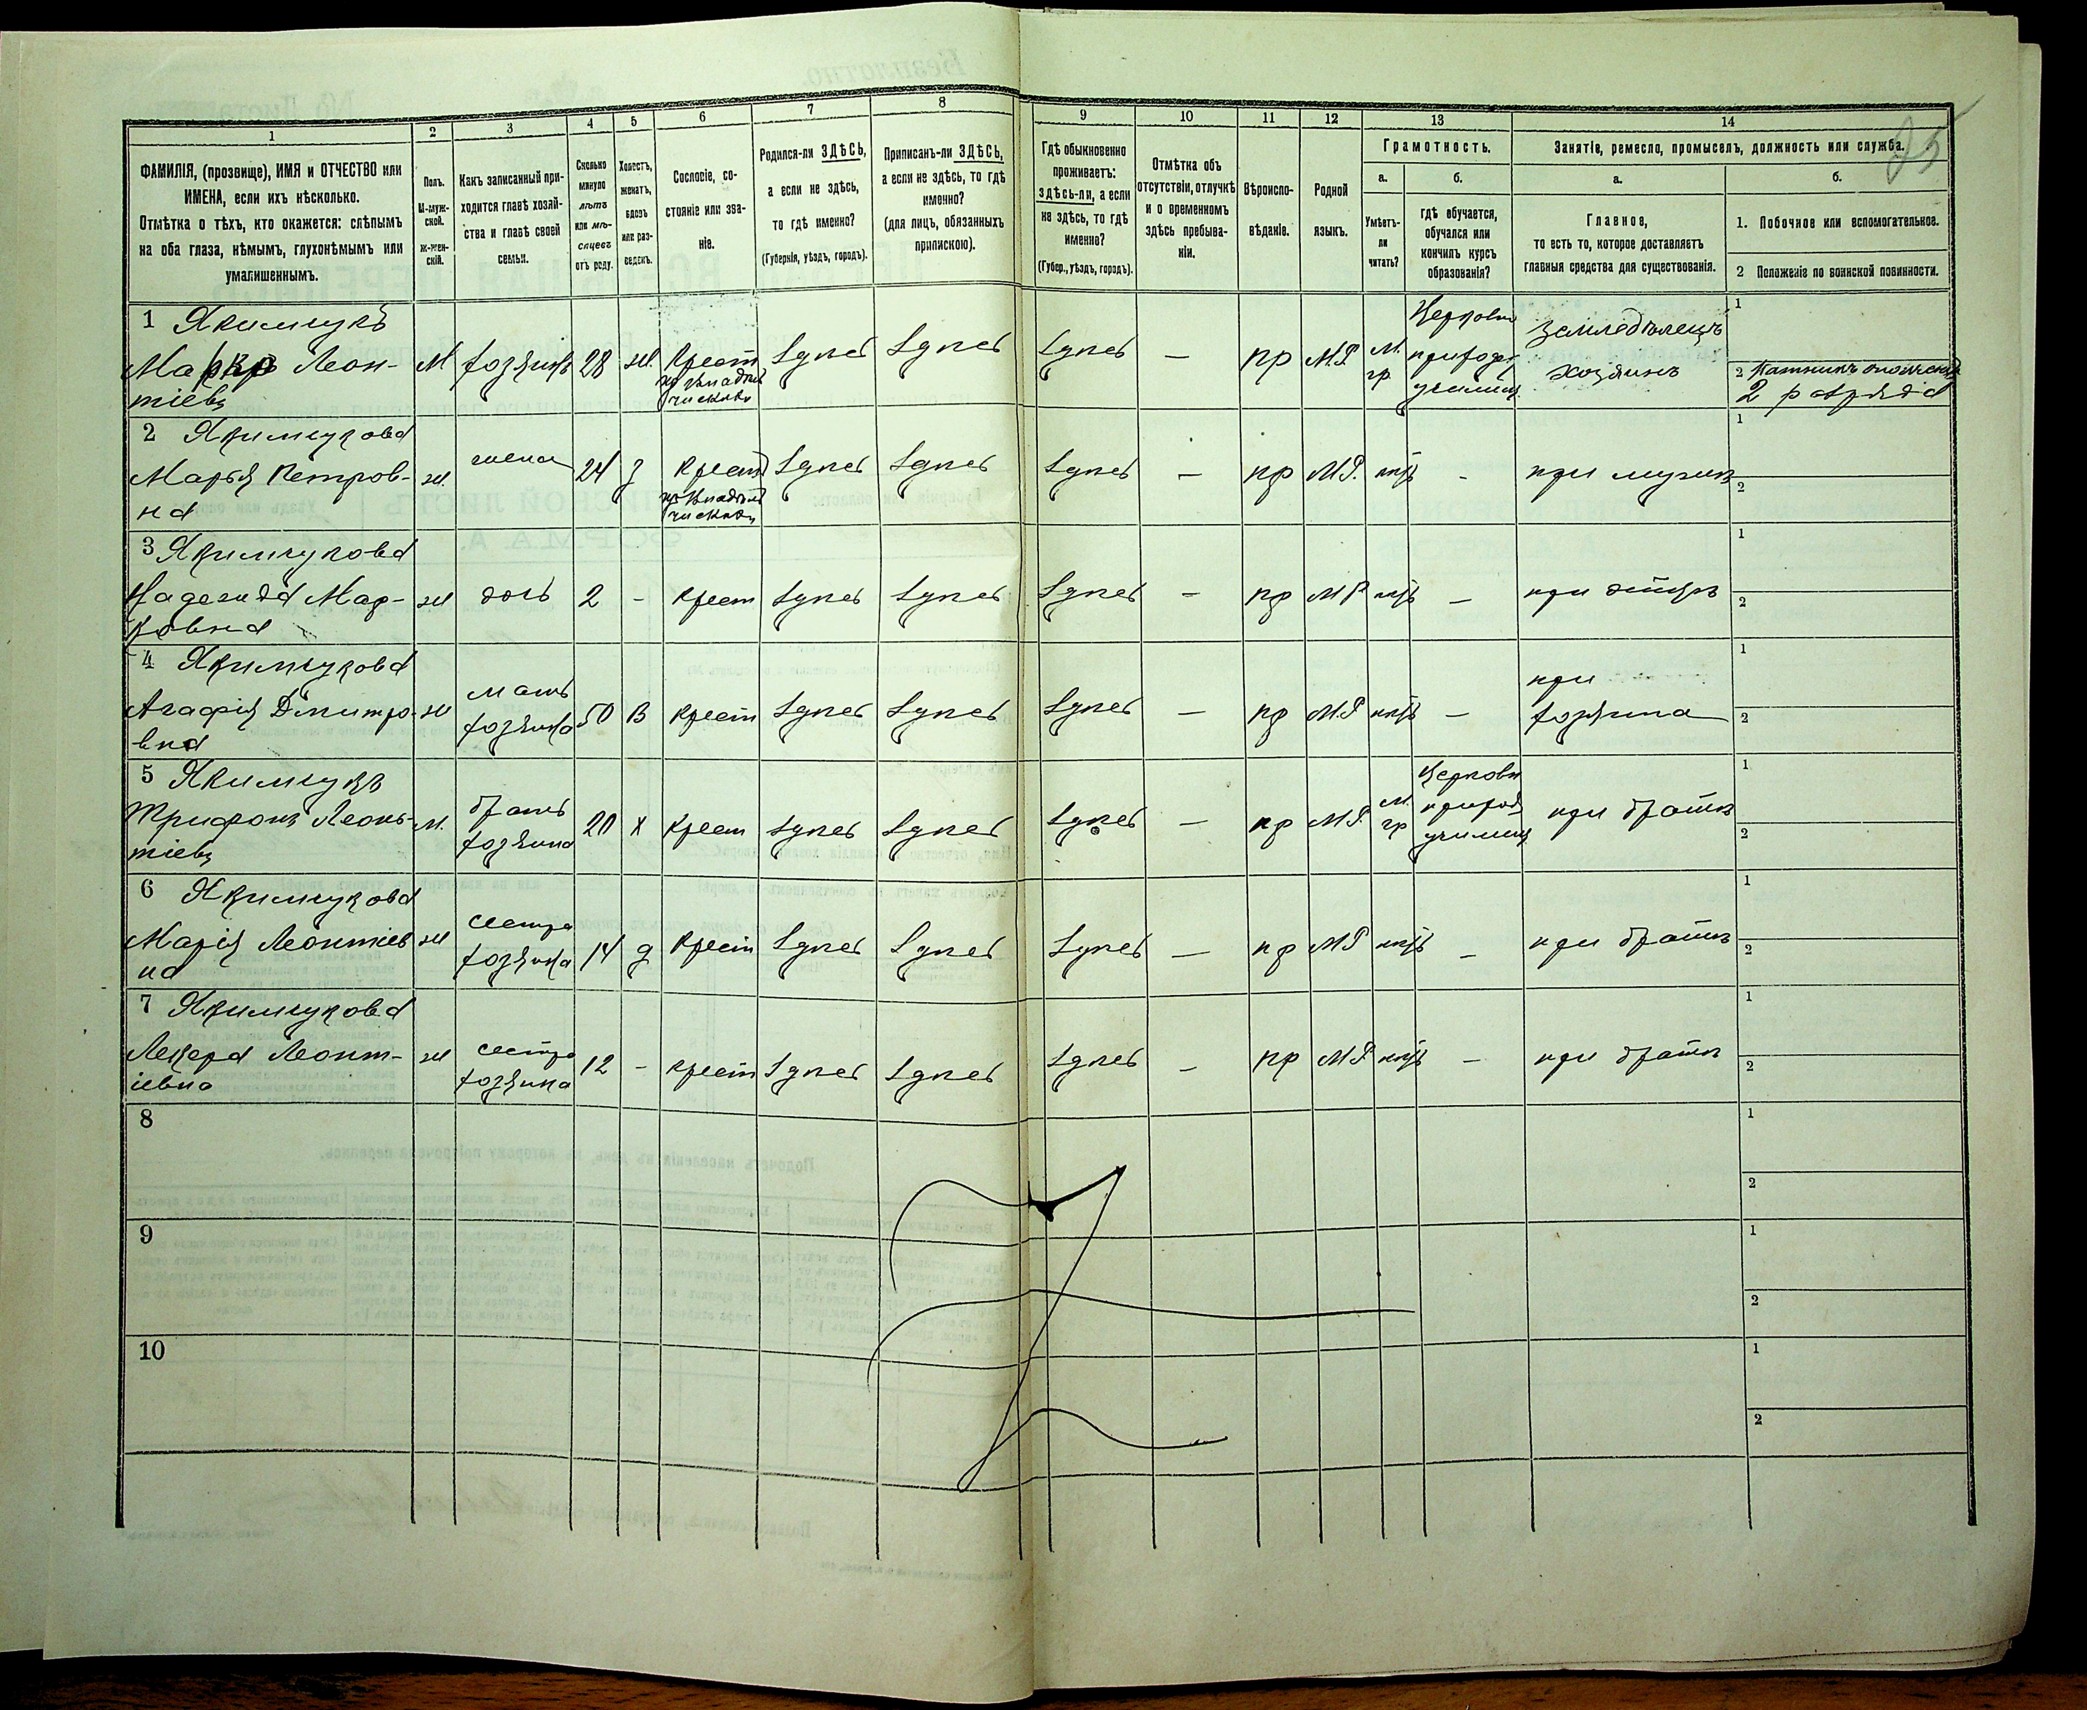 25
1
2
3
4
5
6
7
8
9
10
11
12
13
14
ФАМИЛІЯ, (прозвище), ИМЯ и ОТЧЕСТВО или
ИМЕНА, если ихъ нѣсколько.
Отмѣтка о тѣхъ, кто окажется: слѣпымъ
на оба глаза, нѣмымъ, глухонѣмымъ или
умалишеннымъ.
Полъ.
М-муж-
ской.
Ж-жен-
скій.
Какъ записанный при-
ходится главѣ хозяй-
ства и главѣ своей
семьи.
Сколько
минуло
лѣтъ
или мѣ-
сяцевъ
отъ роду.
Холостъ,
женатъ,
вдовъ
или раз-
веденъ.
Сословіе, со-
стояніе или зва-
ніе.
Родился-ли ЗДѢСЬ,
а если не здѣсь,
то гдѣ именно?
(Губернія, уѣздъ, городъ).
Приписанъ-ли ЗДѢСЬ,
а если не здѣсь, то гдѣ
именно?
(для лицъ, обязанныхъ
припискою).
Гдѣ обыкновенно
проживаетъ:
здѣсь-ли, а если
не здѣсь, то гдѣ
именно?
(Губер., уѣздъ, городъ).
Отмѣтка объ
отсутствіи, отлучкѣ
и о временномъ
здѣсь пребыва-
ніи.
Вѣроиспо-
вѣданіе.
Родной
языкъ.
Грамотность.
а.
Умѣетъ-
ли
читать?
б.
гдѣ обучается,
обучался или
кончилъ курсъ
образованія?
Занятіе, ремесло, промыселъ, должность или служба.
а.
Главное,
то есть то, которое доставляетъ
главныя средства для существованія.
б.
1. Побочное или вспомогательное.
2 Положеніе по воинской повинности.
1 Якимчукъ
Марко Леон-
тіевъ
М
хозяинъ
28
ж.
Крест
изъ владѣль
ческихъ
здѣсь
здѣсь
здѣсь
—
пр
М.Р.
М.
гр
Церковно
приход
училищ
земледѣлецъ
хозяинъ
1
2 Ратникъ ополченія
2 разряда
2 Якимчукова
Марья Петров-
на
ж.
жена
24
з
Крест
изъ владѣль
ческихъ
здѣсь
здѣсь
здѣсь
—
пр
М.Р.
нѣтъ
-
при мужѣ
1
2
3 Якимчукова
Надежда Мар-
ковна
ж
дочь
2
-
крест
здѣсь
здѣсь
здѣсь
—
пр
М Р
нѣтъ
—
при отцѣ
1
2
4 Якимчукова
Агафія Дмитро-
вна
ж
мать
хозяина
50
В
крест
здѣсь
здѣсь
здѣсь
—
пр
М.Р
нѣтъ
—
при
хозяина
1
2
5 Якимчукъ
Трифонъ Леонь-
тіевъ
М.
братъ
хозяина
20
х
крест
здѣсь
здѣсь
здѣсь
—
пр
М.Р.
М.
гр
Церковн
приход
училищ
при братѣ
1
2
6 Якимчукова
Марія Леонтіев
на
ж
сестра
хозяина
14
д
крест
здѣсь
здѣсь
здѣсь
—
пр
М Р
нѣтъ
-
при братѣ
1
2
7 Якимчукова
Леонт-
іевна
ж
сестра
хозяина
12
-
крест
здѣсь
здѣсь
здѣсь
—
пр
М Р
нѣтъ
—
при братѣ
1
2
8
1
2
9
1
2
10
1
2